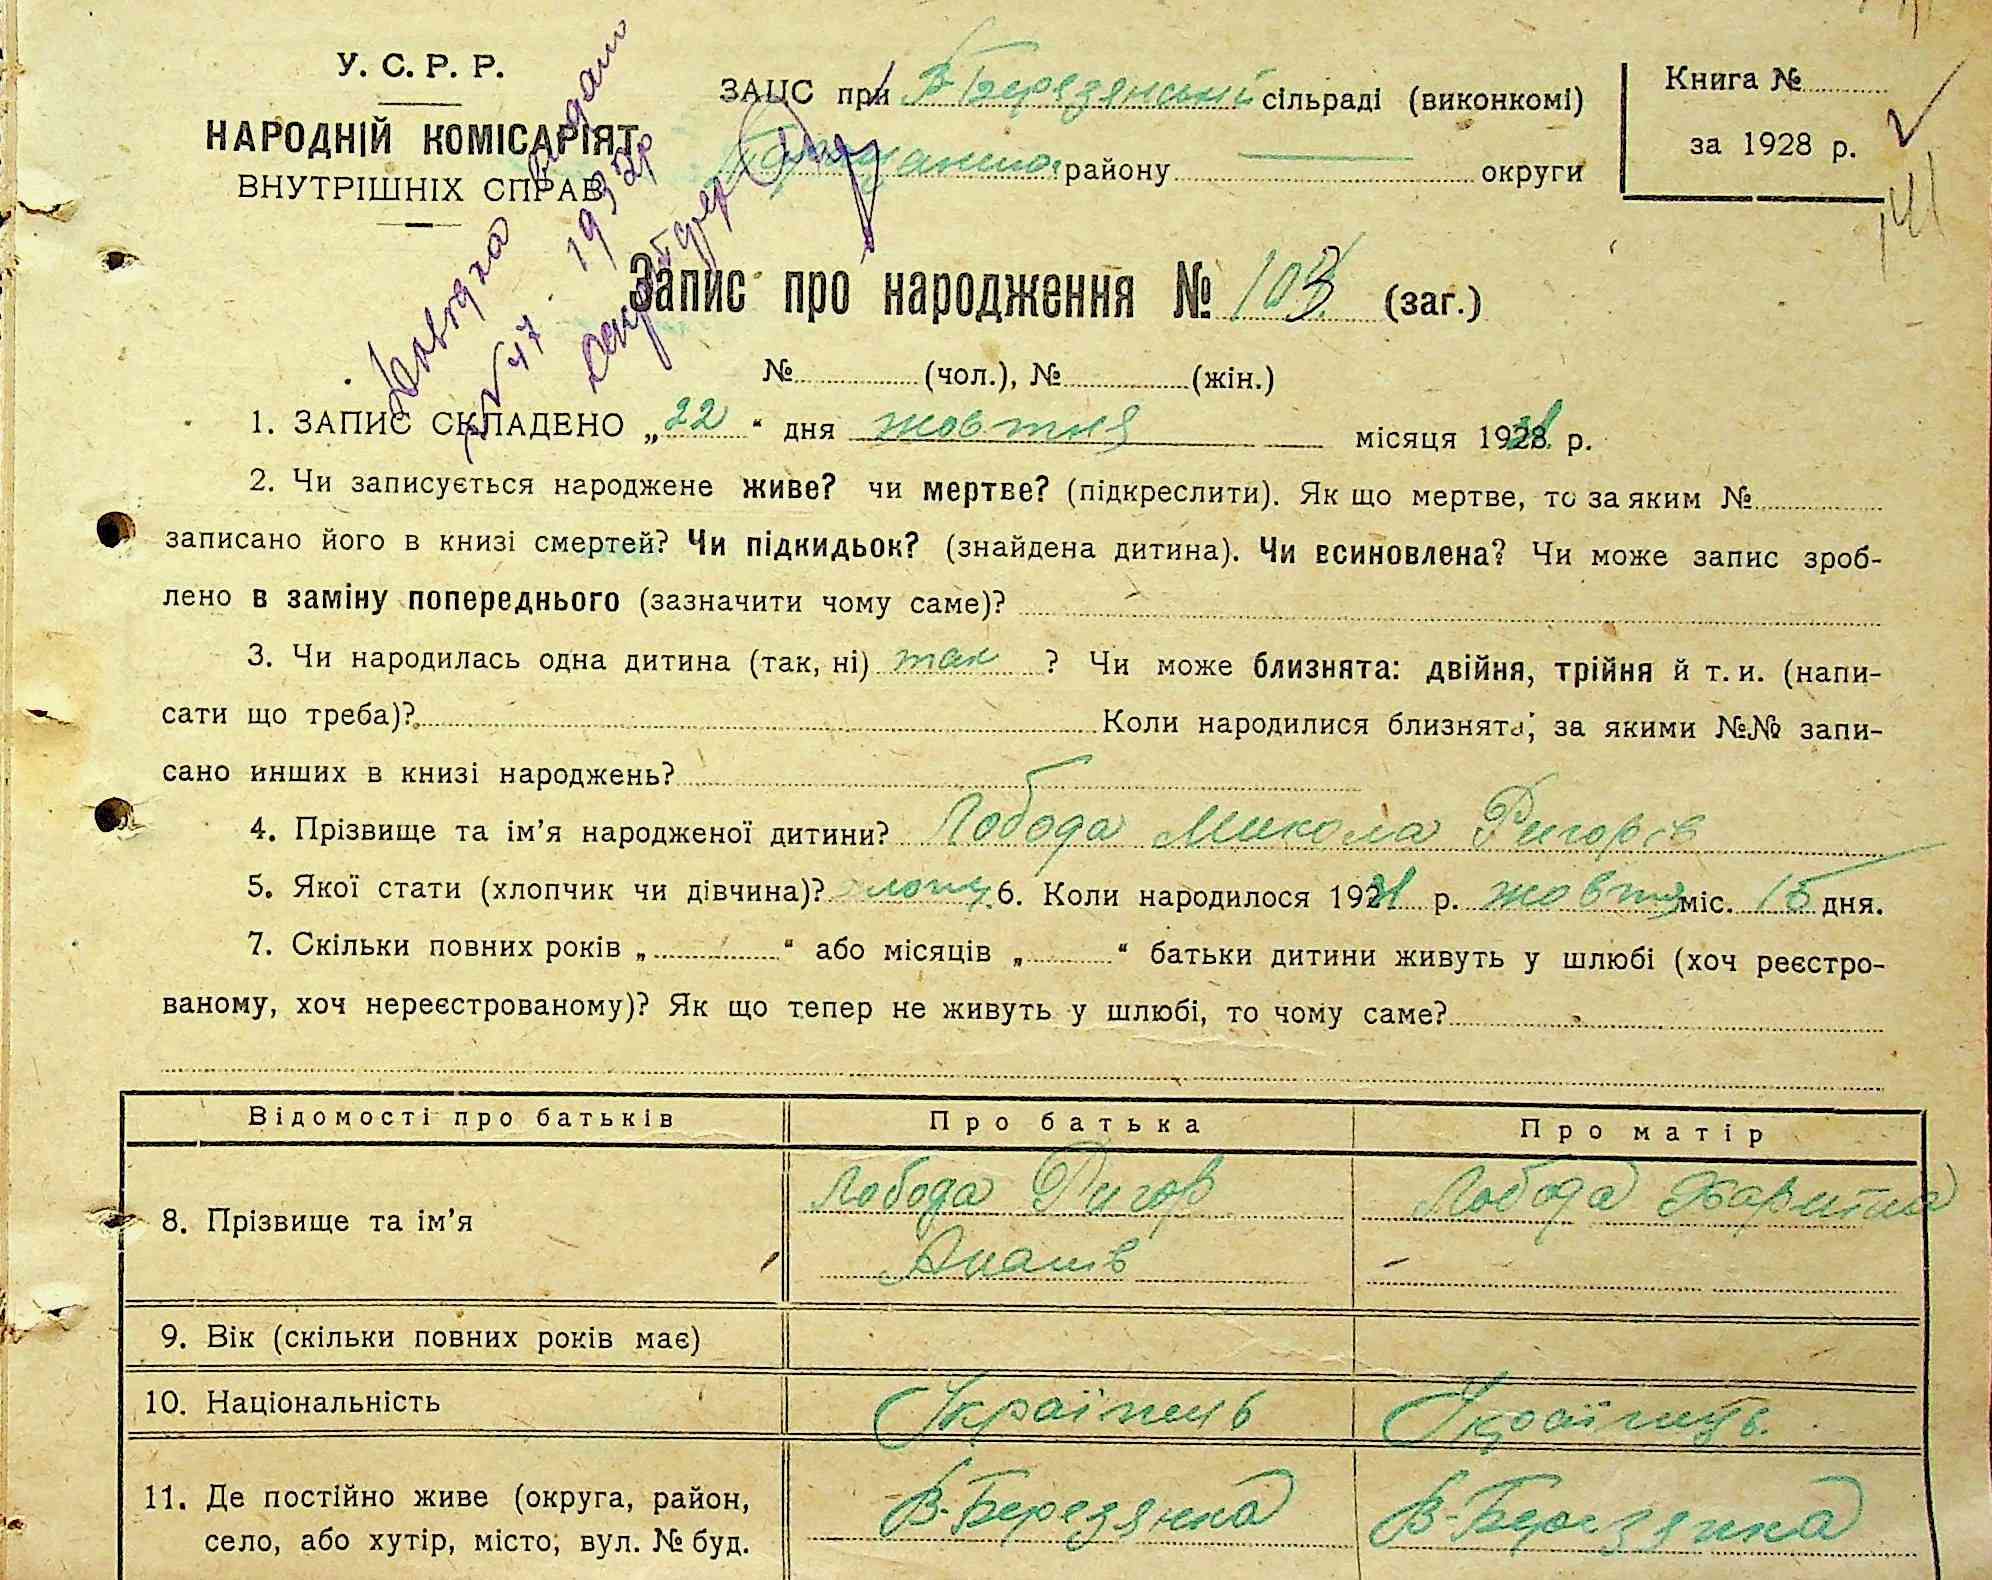 У. С. Р. Р.
НАРОДНІЙ КОМІСАРІЯТ
ВНУТРІШНІХ СПРАВ
ЗАЦС при В-Березянській сільраді (виконкомі)
району округи
Книга №
за 1928 р.
Довідка видано
№ 47 193
Запис про народження № 103 (заг.)
№ (чол.), № (жін.)
1. ЗАПИС СКЛАДЕНО „22“ дня жовтня місяця 1928 р.
2. Чи записується народжене живе? чи мертве? (підкреслити). Як що мертве, то за яким №
записано його в книзі смертей? Чи підкидьок? (знайдена дитина). Чи всиновлена? Чи може запис зроб-
лено в заміну попереднього (зазначити чому саме)?
3. Чи народилась одна дитина (так, ні) так ? Чи може близнята: двійня, трійня й т. и. (напи-
сати що треба)? Коли народилися близнята, за якими №№ запи-
сано инших в книзі народжень?
4. Прізвище та ім’я народженої дитини? Лобода Микола Ригорів
5. Якої стати (хлопчик чи дівчина)? хлопц 6. Коли народилося 1931 р. жовтня міс. 15 дня.
7. Скільки повних років „ “ або місяців „ “ батьки дитини живуть у шлюбі (хоч реєстро-
ваному, хоч нереєстрованому)? Як що тепер не живуть у шлюбі, то чому саме?
Відомості про батьків Про батька Про матір
8. Прізвище та ім’я Лобода Ригор Лобода Харитина
9. Вік (скільки повних років має)
10. Національність Українець Українець.
11. Де постійно живе (округа, район, В-Березянка В-Березянка
село, або хутір, місто, вул. № буд.